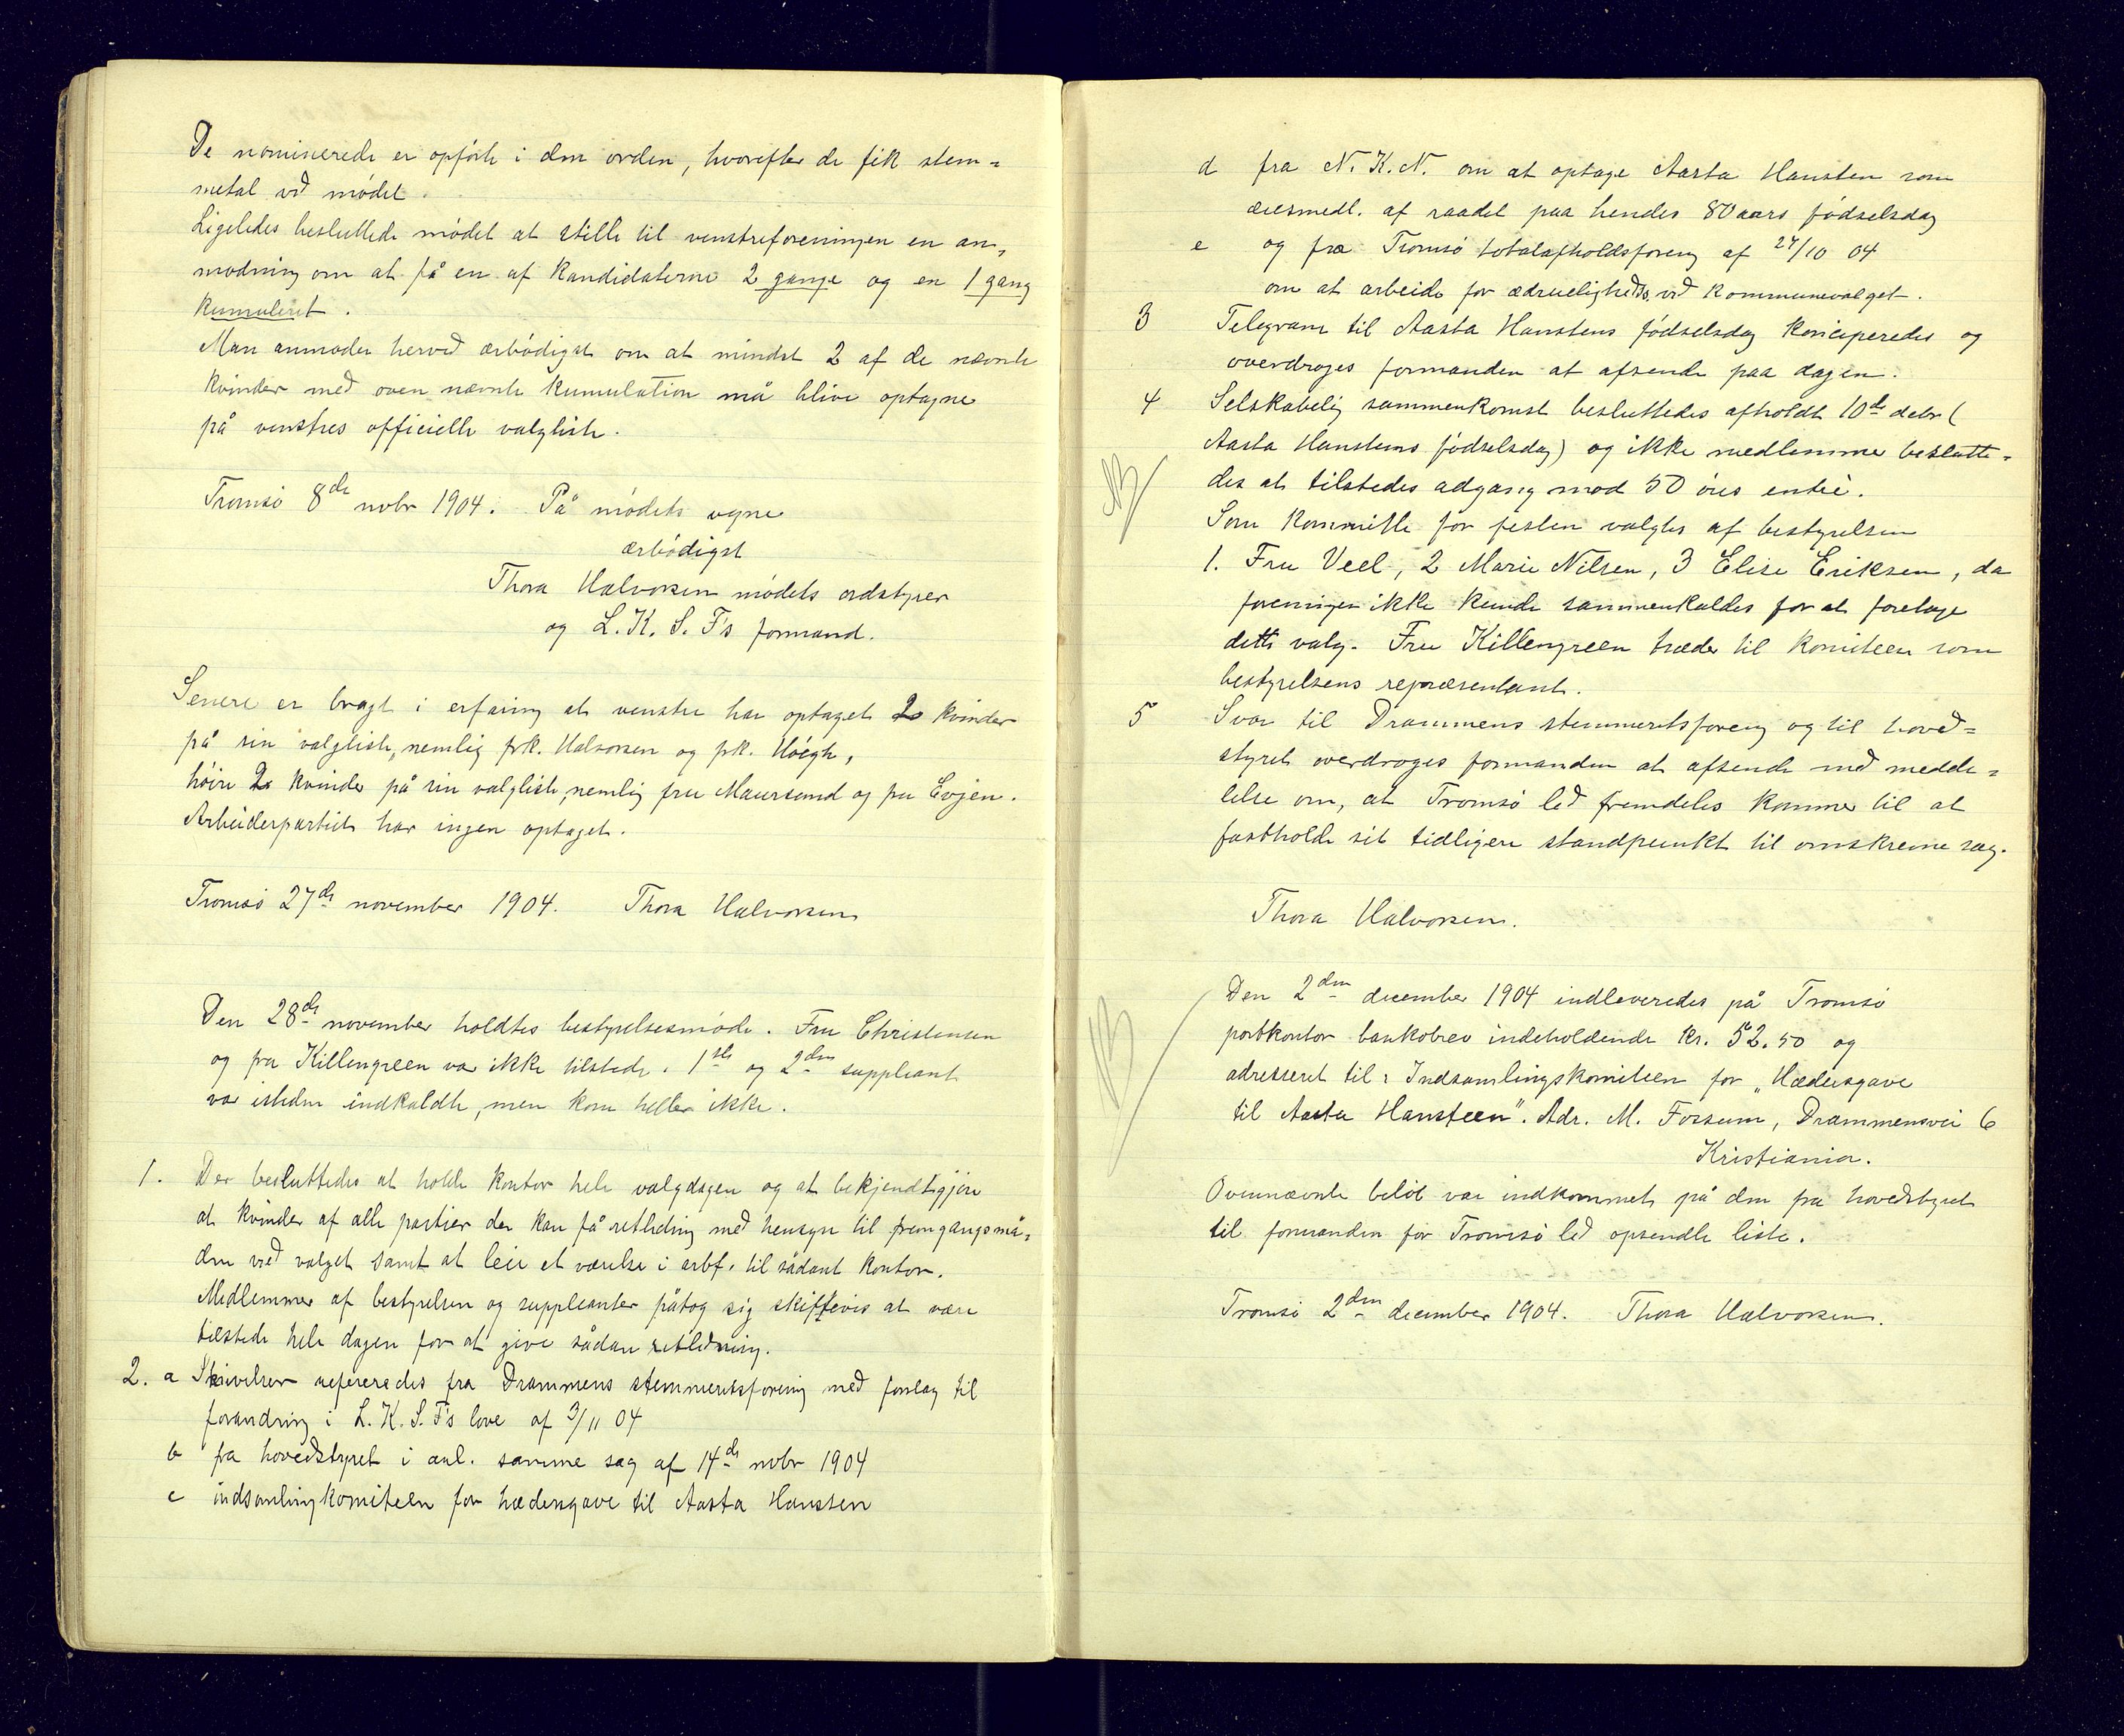 De nominerede er opførte i den orden, hvorefter de fik stem=
metal ved mødet.
Ligeledes besluttede mødet at stille til venstreforeningen en an=
modning om at få en af kandidaterne 2 gange og en 1 gang
kumuleret.
Man anmoder herved ærbødigst om at mindst 2 af de nævnte
kvinder med oven nævnte kumulation må blive optagne
på venstres officielle valgliste.
Tromsø 8de nvbr 1904. På mødets vegne
ærbødigst
Thora Halvorsen mødets ordstyrer
og L. K. S. F's formand.
Senere er bragt i erfaring at venstre har optaget 2 kvinder
på sin valgliste, nemlig frk. Halvorsen og frk. Høegh,
høire 2 kvinder på sin valgliste, nemlig fru Maursund og fru Evjen.
Arbeiderpartiet har ingen optaget.
Tromsø 27de november 1904. Thora Halvorsen
Den 28de november holdtes bestyrelsesmøde. Fru Christensen
og fru Killengreen var ikke tilstede. 1ste og 2den suppleant
var isteden indkaldte, men kom heller ikke.
1. Der besluttedes at holde kontor hele valgdagen og at bekjendtgjøre
at kvinder af alle partier der kan få retledning med hensyn til fremgangsmå=
den ved valget samt at leie et værelse i arbf. til sådant kontor.
Medlemmer af bestyrelsen og suppleanter påtog sig skiftevis at være
tilstede hele dagen for at give sådan retledning.
2. a Skrivelser refereredes fra Drammens stemmeretsforening med forslag til
forandring i L. K. S. F's love af 3/11 04
b fra hovedstyret i anl. samme sag af 14de nvbr 1904
c indsamlingkomiteen for hædersgave til Aasta Hansten
d fra N. K. N. om at optage Aasta Hansten som
æresmedl. af raadet paa hendes 80 aars fødselsdag
e og fra Tromsø totalafholdsforeng af 27/10 04
om at arbeide for ædrueligheds, ved kommunevalget.
3 Telegram til Aasta Hanstens fødselsdag konciperedes og
overdroges formanden at afsende paa dagen.
4 Selskabelig sammenkomst besluttedes afholdt 10de debr (
Aasta Hanstens fødselsdag) og ikke medlemmer beslutte=
NB
des at tilstedes adgang mod 50 øres entré.
Som kommitte for festen valgtes af bestyrelsen
1. Fru Veel, 2 Marie Nilsen, 3 Elise Eriksen, da
foreningen ikke kunde sammenkaldes for at foretage
dette valg. Fru Killengreen træder til komiteen som
bestyrelsens repræsentant.
5 Svar til Drammens stemmeretsforeng og til hoved=
styret overdroges formanden at afsende med medde=
lelse om, at Tromsø led fremdeles kommer til at
fastholde sit tidligere standpunkt til omskrevne sag.
Thora Halvorsen.
Den 2den december 1904 indleveredes på Tromsø
NB
postkontor bankobrev indeholdende kr. 52.50 og
adresseret til: Indsamlingskomiteen for „Hædersgave
til Aasta Hansteen". Adr. M. Forsum, Drammensvei 6
Kristiania.
Ovennævnte beløb var indkommet på den fra hovedstyret
til formanden for Tromsø led opsendte liste.
Tromsø 2den december 1904. Thora Halvorsen.